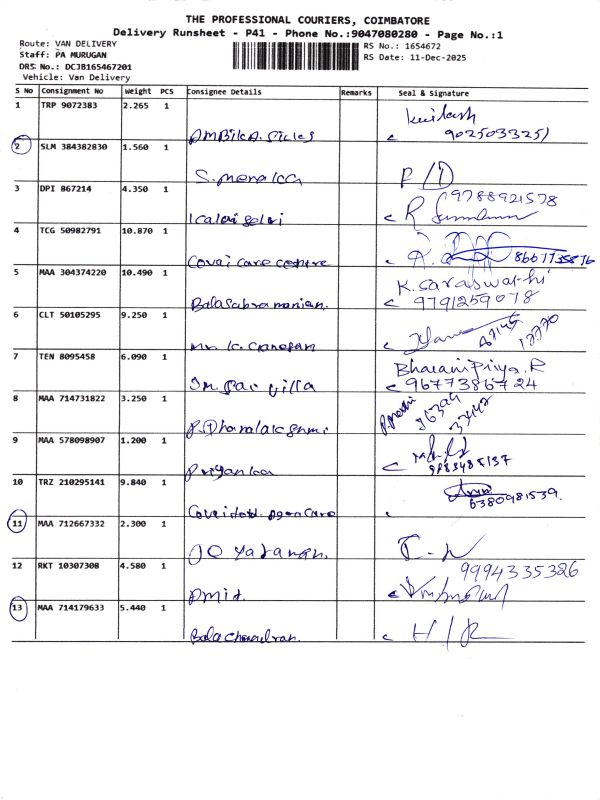 THE PROFESSIONAL COURIERS, COIMBATORE
Delivery Runsheet - P41 - Phone No.:9047080280 - Page No.:1
Route: VAN DELIVERY
Staff: PA MURUGAN
DRS No.: DCJB165467201
Vehicle: Van Delivery
RS No.: 1654672
RS Date: 11-Dec-2025
S No Consignment No Weight PCS Consignee Details Remarks Seal & Signature
1 TRP 9072383 2.265 1
9025033251
2 SLM 384382830 1.560 1
S. menaka
3 DPI 867214 4.350 1 9788921578
Kalai selvi
4 TCG 50982791 10.870 1
Covai care centre
5 MAA 304374220 10.490 1 K. Saraswathi
Balasubramanian. 9791259078
6 CLT 50105295 9.250 1
Mr. K. Ganesan
7 TEN 8095458 6.090 1 Bharani Priya. R
Sri Sai villa 9677386724
8 MAA 714731822 3.250 1
P. Dhanalakshmi
9 MAA 578098907 1.200 1
Priyanka
10 TRZ 210295141 9.840 1
6380981539.
11 MAA 712667332 2.300 1
12 RKT 10307308 4.580 1 9994335326
Amit.
13 MAA 714179633 5.440 1
Bala Chandran.